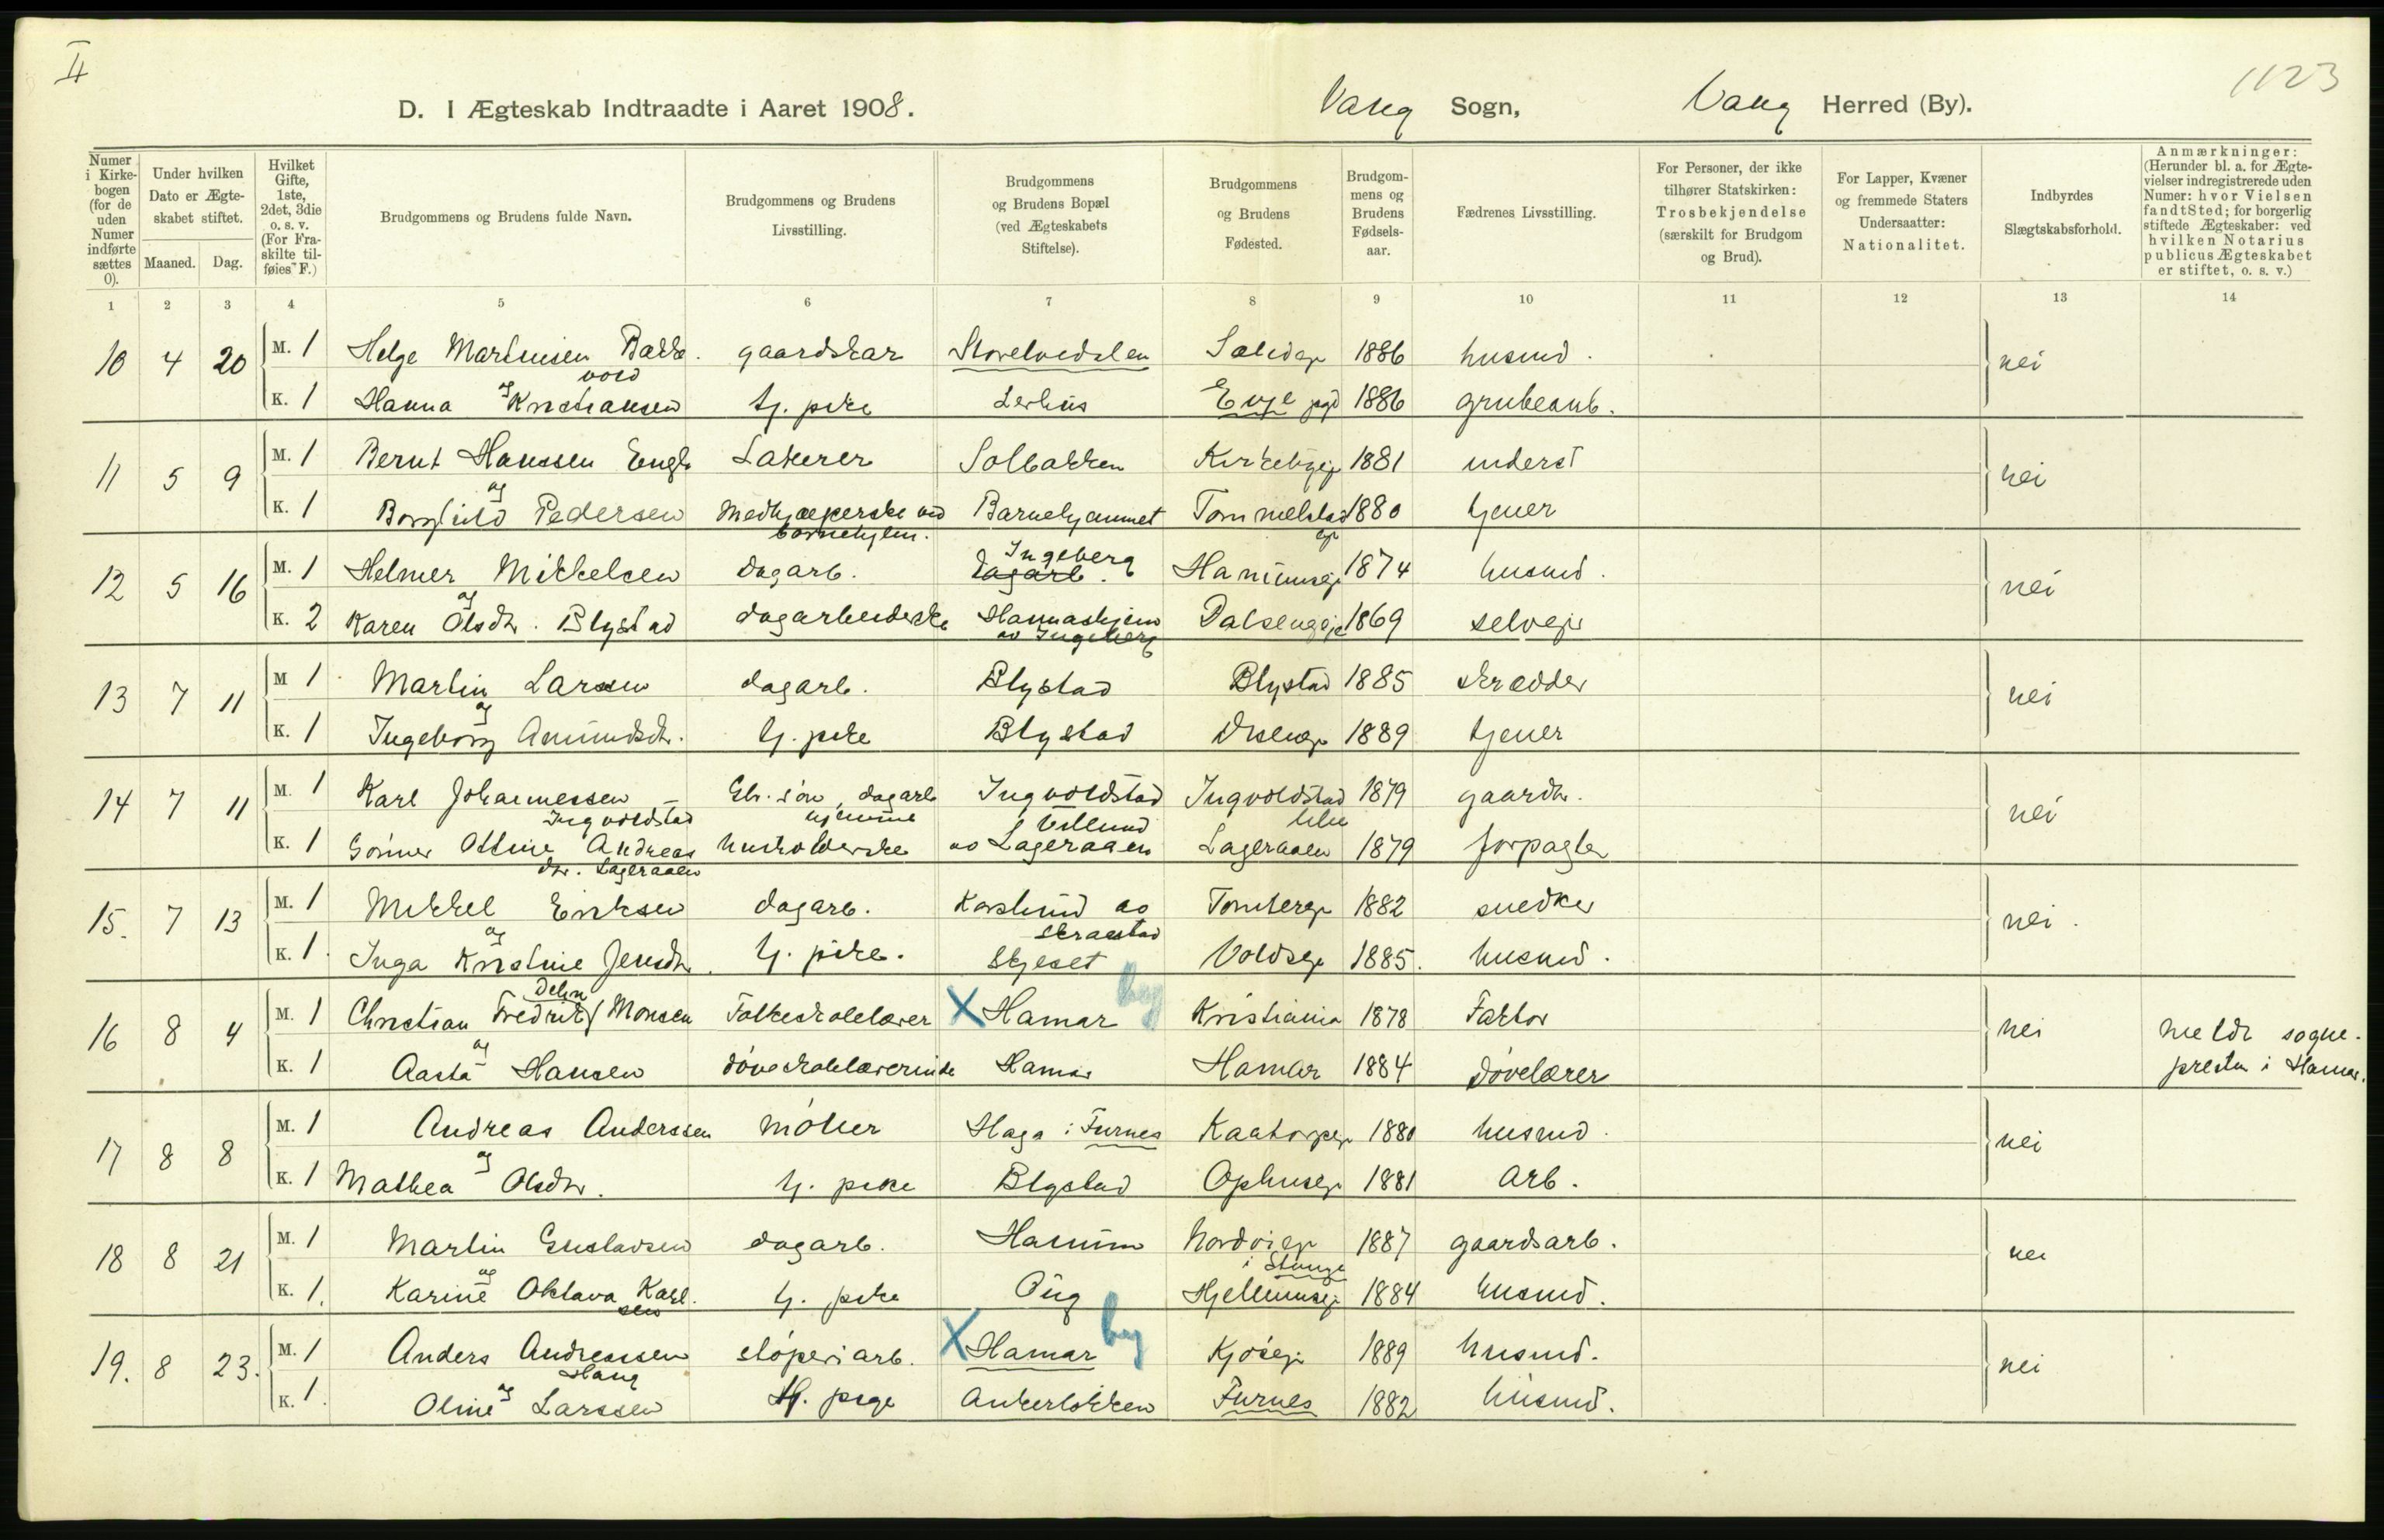 II
1123
D. I Ægteskab Indtraadte i Aaret 1908.
Vang Sogn, Vang Herred (By).
Numer i Kirkebogen (for de uden Numer indførte sættes 0).
Under hvilken Dato er Ægteskabet stiftet.
Maaned. Dag.
Hvilket Gifte, 1ste, 2det, 3die o. s. v. (For Fraskilte tilføies F.)
Brudgommens og Brudens fulde Navn.
Brudgommens og Brudens Livsstilling.
Brudgommens og Brudens Bopæl (ved Ægteskabets Stiftelse).
Brudgommens og Brudens Fødested.
Brudgommens og Brudens Fødselsaar.
Fædrenes Livsstilling.
For Personer, der ikke tilhører Statskirken: Trosbekjendelse (særskilt for Brudgom og Brud).
For Lapper, Kvæner og fremmede Staters Undersaatter: Nationalitet.
Indbyrdes Slægtskabsforhold.
Anmærkninger: (Herunder bl. a. for Ægtevielser indregistrerede uden Numer: hvor Vielsen fandt Sted; for borgerlig stiftede Ægteskaber: ved hvilken Notarius publicus Ægteskabet er stiftet, o. s. v.)
1 2 3 4 5 6 7 8 9 10 11 12 13 14
10 4 20 M. 1 Helge Martinsen Bakke- gaardskar 1886 husmd. nei
vold
og
K. 1 Hanna Kristiansen tj. pike Lerhus 1886 grubearb.
11 5 9 M. 1 Bernt Hanssen Engh Lakerer Solbakken Kirkebyeje 1881 inderst nei
og
K. 1 Borghild Pedersen Medhjælperske ved Barnehjemmet Tommelstad 1880 tjener
barnehjem. eje
12 5 16 M. 1 Helmer Mikkelsen dagarb. Ingeberg dagarb. 1874 husmd. nei
og
K. 2 Karen Olsdtr. Blystad dagarbeiderske Dalsengeje 1869 selvejer
av Ingeberg
13 7 11 M 1 Martin Larssen dagarb. Blystad Blystad 1885 skrædder nei
og
K. 1 Ingeborg Amundsdtr. tj. pike Blystad 1889 tjener
14 7 11 M. 1 Karl Johannessen Gbr. søn, dagarb Ingvoldstad Ingvoldstad 1879 gaardbr. nei
Ingvoldstad hjemme lille
K. 1 Gørine Otline Andreas husholderske av Lageraaen Lageraaen 1879 forpagter
dtr. Lageraaen
15. 7 13 M. 1 Mikkel Eriksen dagarb. Karslund av Tombereje 1882 snedker nei.
og Skraastad
K. 1. Inga Kristine Jensdtr. tj. pike. Skjeset Voldeje 1885. husmd.
Dehn by
16 8 4 M. 1 Christian Fredrik Monsen Folkeskolelærer X Hamar Kristiania 1878 Faktor nei meldt sogne-
og
K. 1 Aasta Hansen døveskolelærerinde Hamar Hamar 1884 døvelærer presten i Hamar.
17 8 8 M. 1 Andreas Anderssen møller Haga i Furnes Kaatorpeje 1880 husmd. nei
og
K. 1 Mathea Olsdtr. tj. pike Blystad Ophuseje 1881 arb.
18 8 21 M. 1 Martin Gustavsen dagarb. Hammu Nordvieje 1887 gaardsarb. nei
og i Stange
K. 1. Karine Oktava Karl- tj. pike Oug Hjellumseje 1884 husmd.
sen
19. 8 23. M. 1 Anders Andreassen støperiarb. X Hamar by Kjøseje 1889 husmd. nei
Haug
og
K. 1. Oline Larssen tj. pige Ankerløkken Furnes 1882 husmd.